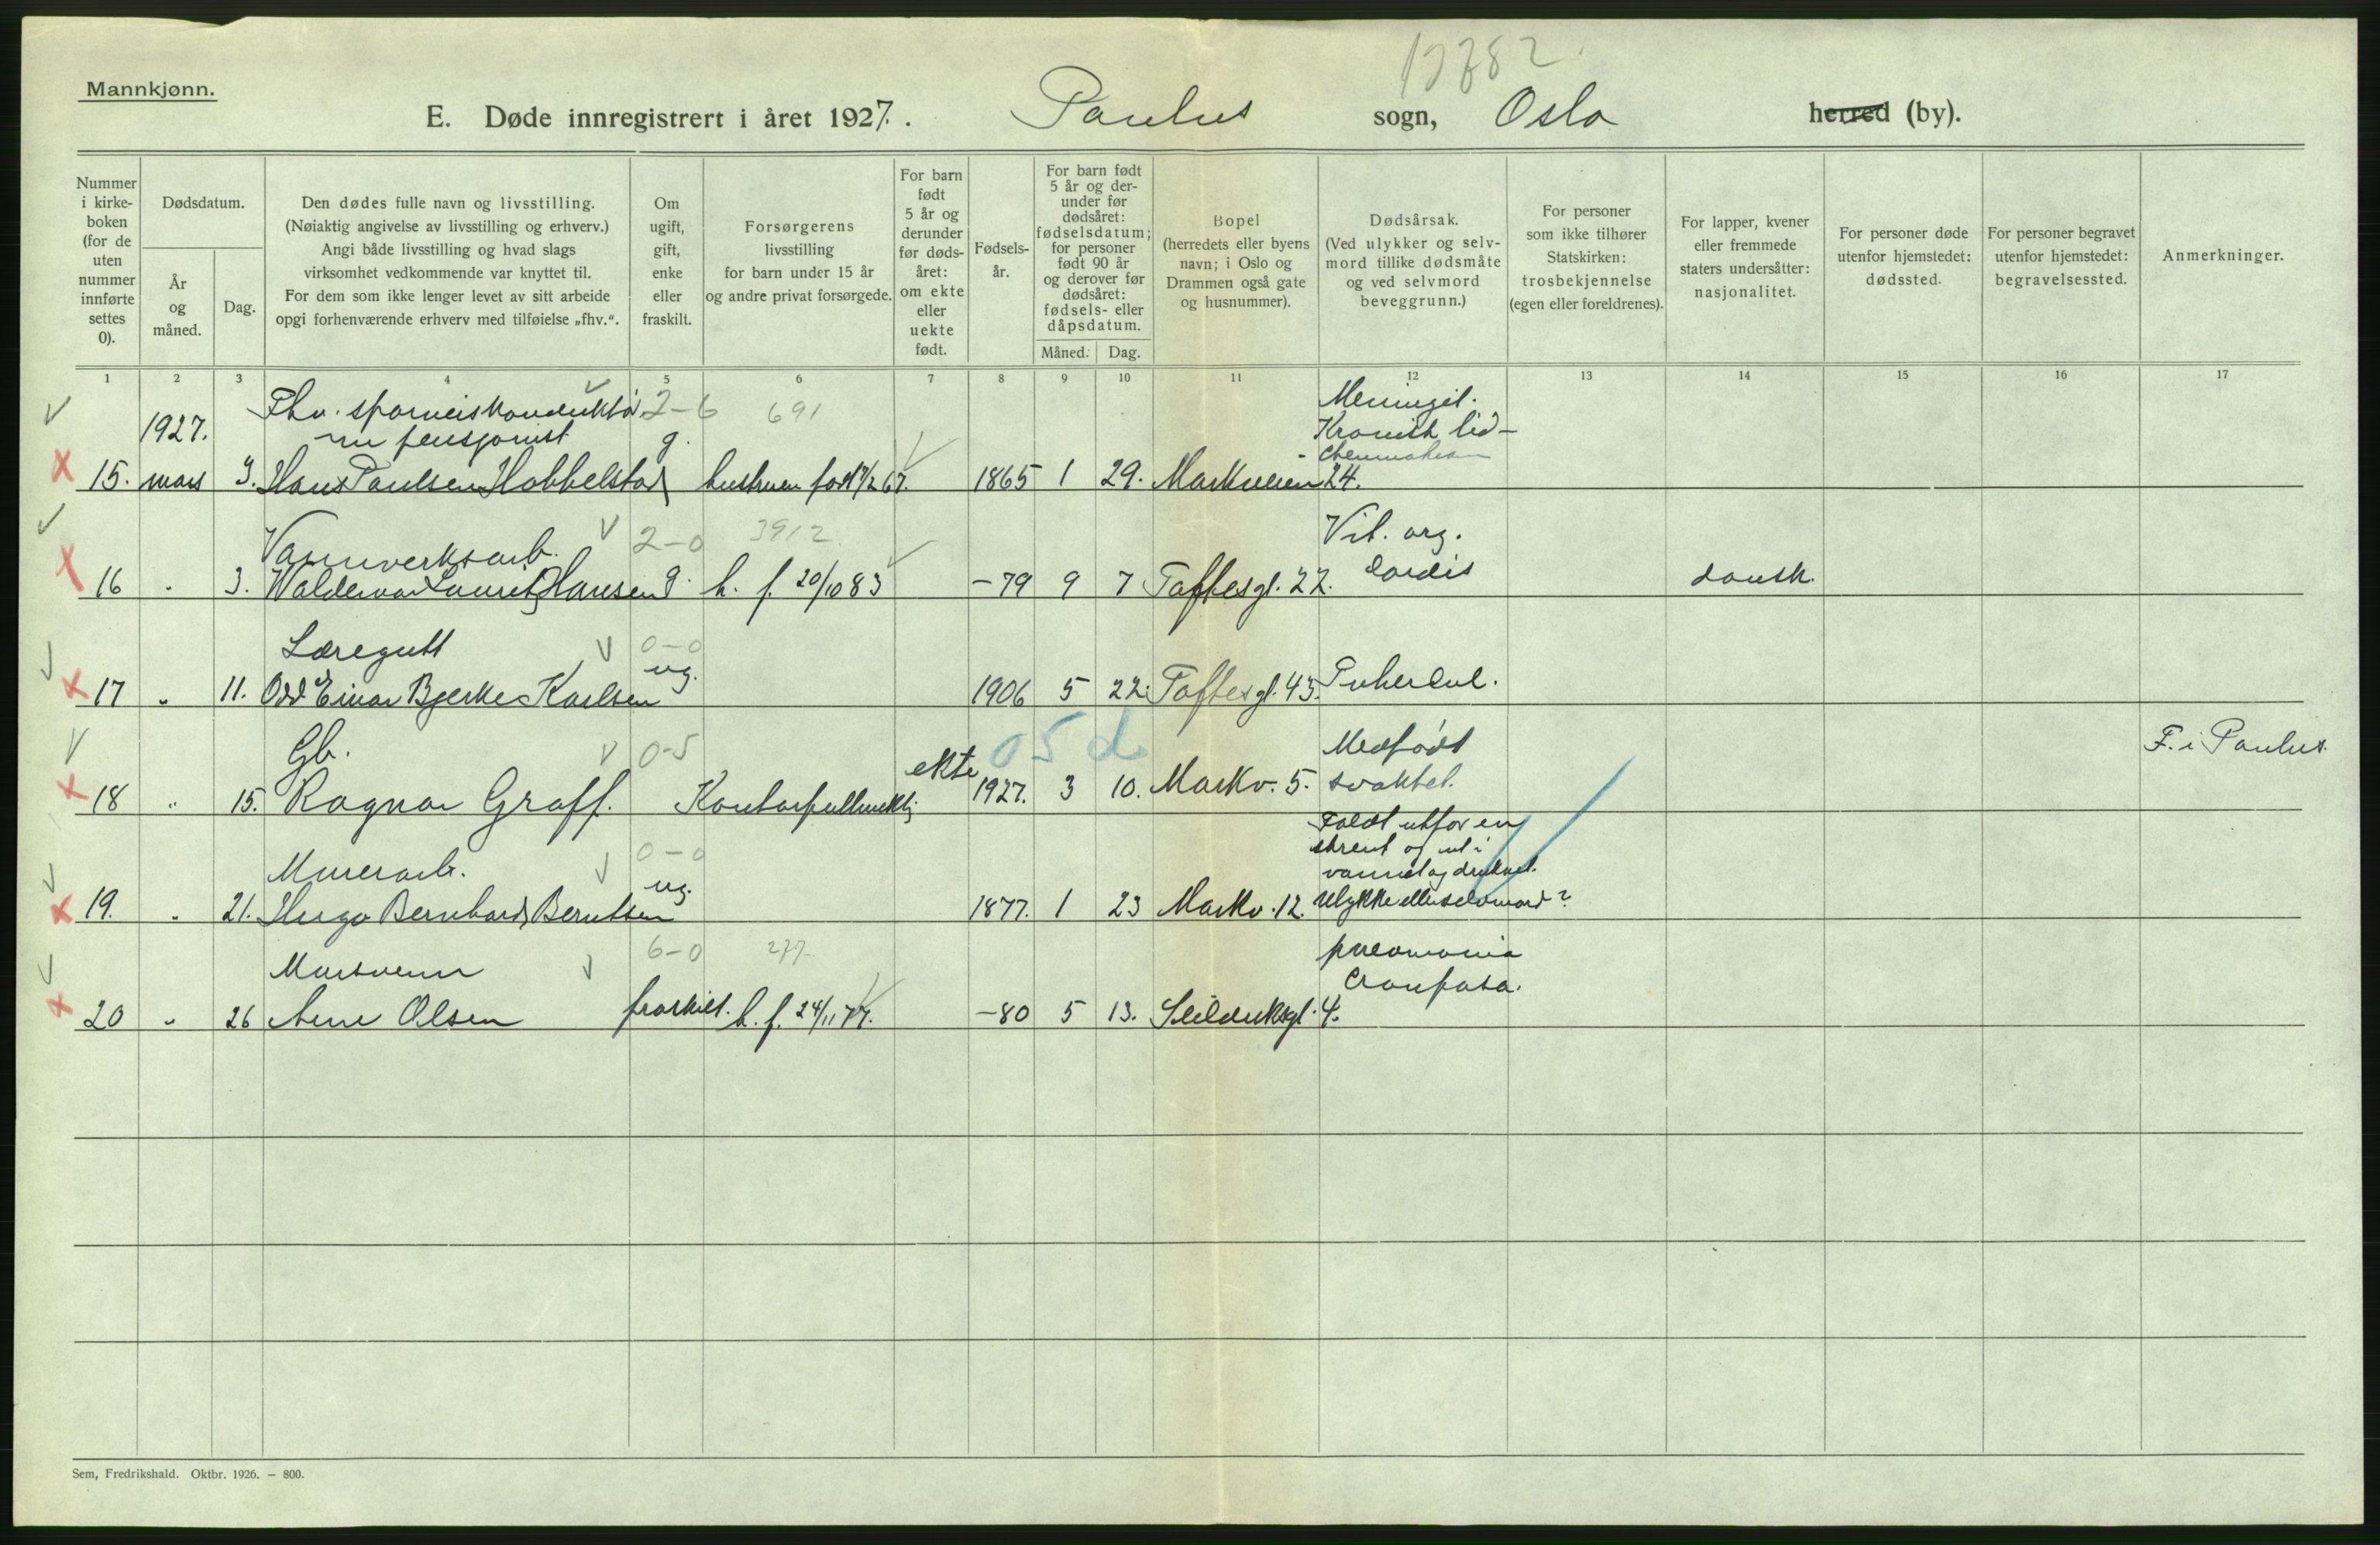 17782.
Mannkjønn.
E. Døde innregistrert i året 1927. Paulus sogn, Oslo herred (by).
Nummer i kirke-boken (for de uten nummer innførte settes 0).
Dødsdatum.
År og måned.
Dag.
Den dødes fulle navn og livsstilling.
(Nøiaktig angivelse av livsstilling og erhverv.)
Angi både livsstilling og hvad slags
virksomhet vedkommende var knyttet til.
For dem som ikke lenger levet av sitt arbeide
opgi forhenværende erhverv med tilføielse „fhv.“.
Om ugift, gift, enke eller fraskilt.
Forsørgerens
livsstilling
for barn under 15 år
og andre privat forsørgede.
For barn født 5 år og derunder før døds-året: om ekte eller uekte født.
Fødsels-år.
For barn født 5 år og der-under før dødsåret: fødselsdatum; for personer født 90 år og derover før dødsåret: fødsels- eller dåpsdatum.
Måned.
Dag.
Bopel
(herredets eller byens
navn; i Oslo og
Drammen også gate
og husnummer).
Dødsårsak.
(Ved ulykker og selv-
mord tillike dødsmåte
og ved selvmord
beveggrunn.)
For personer
som ikke tilhører
Statskirken:
trosbekjennelse
(egen eller foreldrenes).
For lapper, kvener
eller fremmede
staters undersåtter:
nasjonalitet.
For personer døde
utenfor hjemstedet:
dødssted.
For personer begravet
utenfor hjemstedet:
begravelsessted.
Anmerkninger.
1 2 3 4 5 6 7 8 9 10 11 12 13 14 15 16 17
Fhv. sporveiskonduktø 2-6 691 Meningit.
1927. nu pensjonist g. Kronisk lid-
15. mars 3. Hans Paulsen Hobbelstad hustruen født 67. 1865 1 29. Markveien 24.
Vannverksarb. 2-0 3912 Vit. org.
16 " 3. Waldemar Laurits Hansen g. h. f. 20/10 83 -79 9 7 Toftesgt. 22. cordis dansk.
Læregutt 0-0
ug.
17 " 11. Odd Einar Bjerke Karlsen 1906 5 22. Toftesgt. 43. Tubercul.
Gb. 0-5 ekte 05d Medfødt F. i Paulus.
18 " 15. Ragnar Graff. Kontorfullmektig 1927. 3 10. Markv. 5. svakhet.
Faldt utfor en
skrent og ut i
Murerarb. 0-0 vannet og druknet.
ug.
19. " 21. Hugo Bernhard Berntsen 1877. 1 23 Markv. 12. Ulykke eller selvmord?
Mursvenn 6-0 277 pneomonia
Crouposa.
20 " 26 Arne Olsen fraskilt. h. f. 24/11 77. -80 5 13. Seilduksgt. 4.
Sem, Fredrikshald. Oktbr. 1926. — 800.